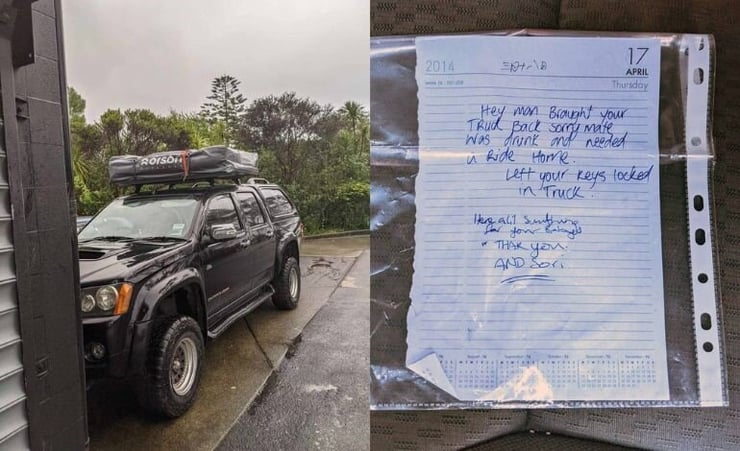 ROISON
2014
17
APRIL
Thursday
Hey man Brought your
Truck Back sorry mate
was drunk and needed
a Ride Home.
Left your keys locked
in Truck.
for your
THAK you.
AND Sori